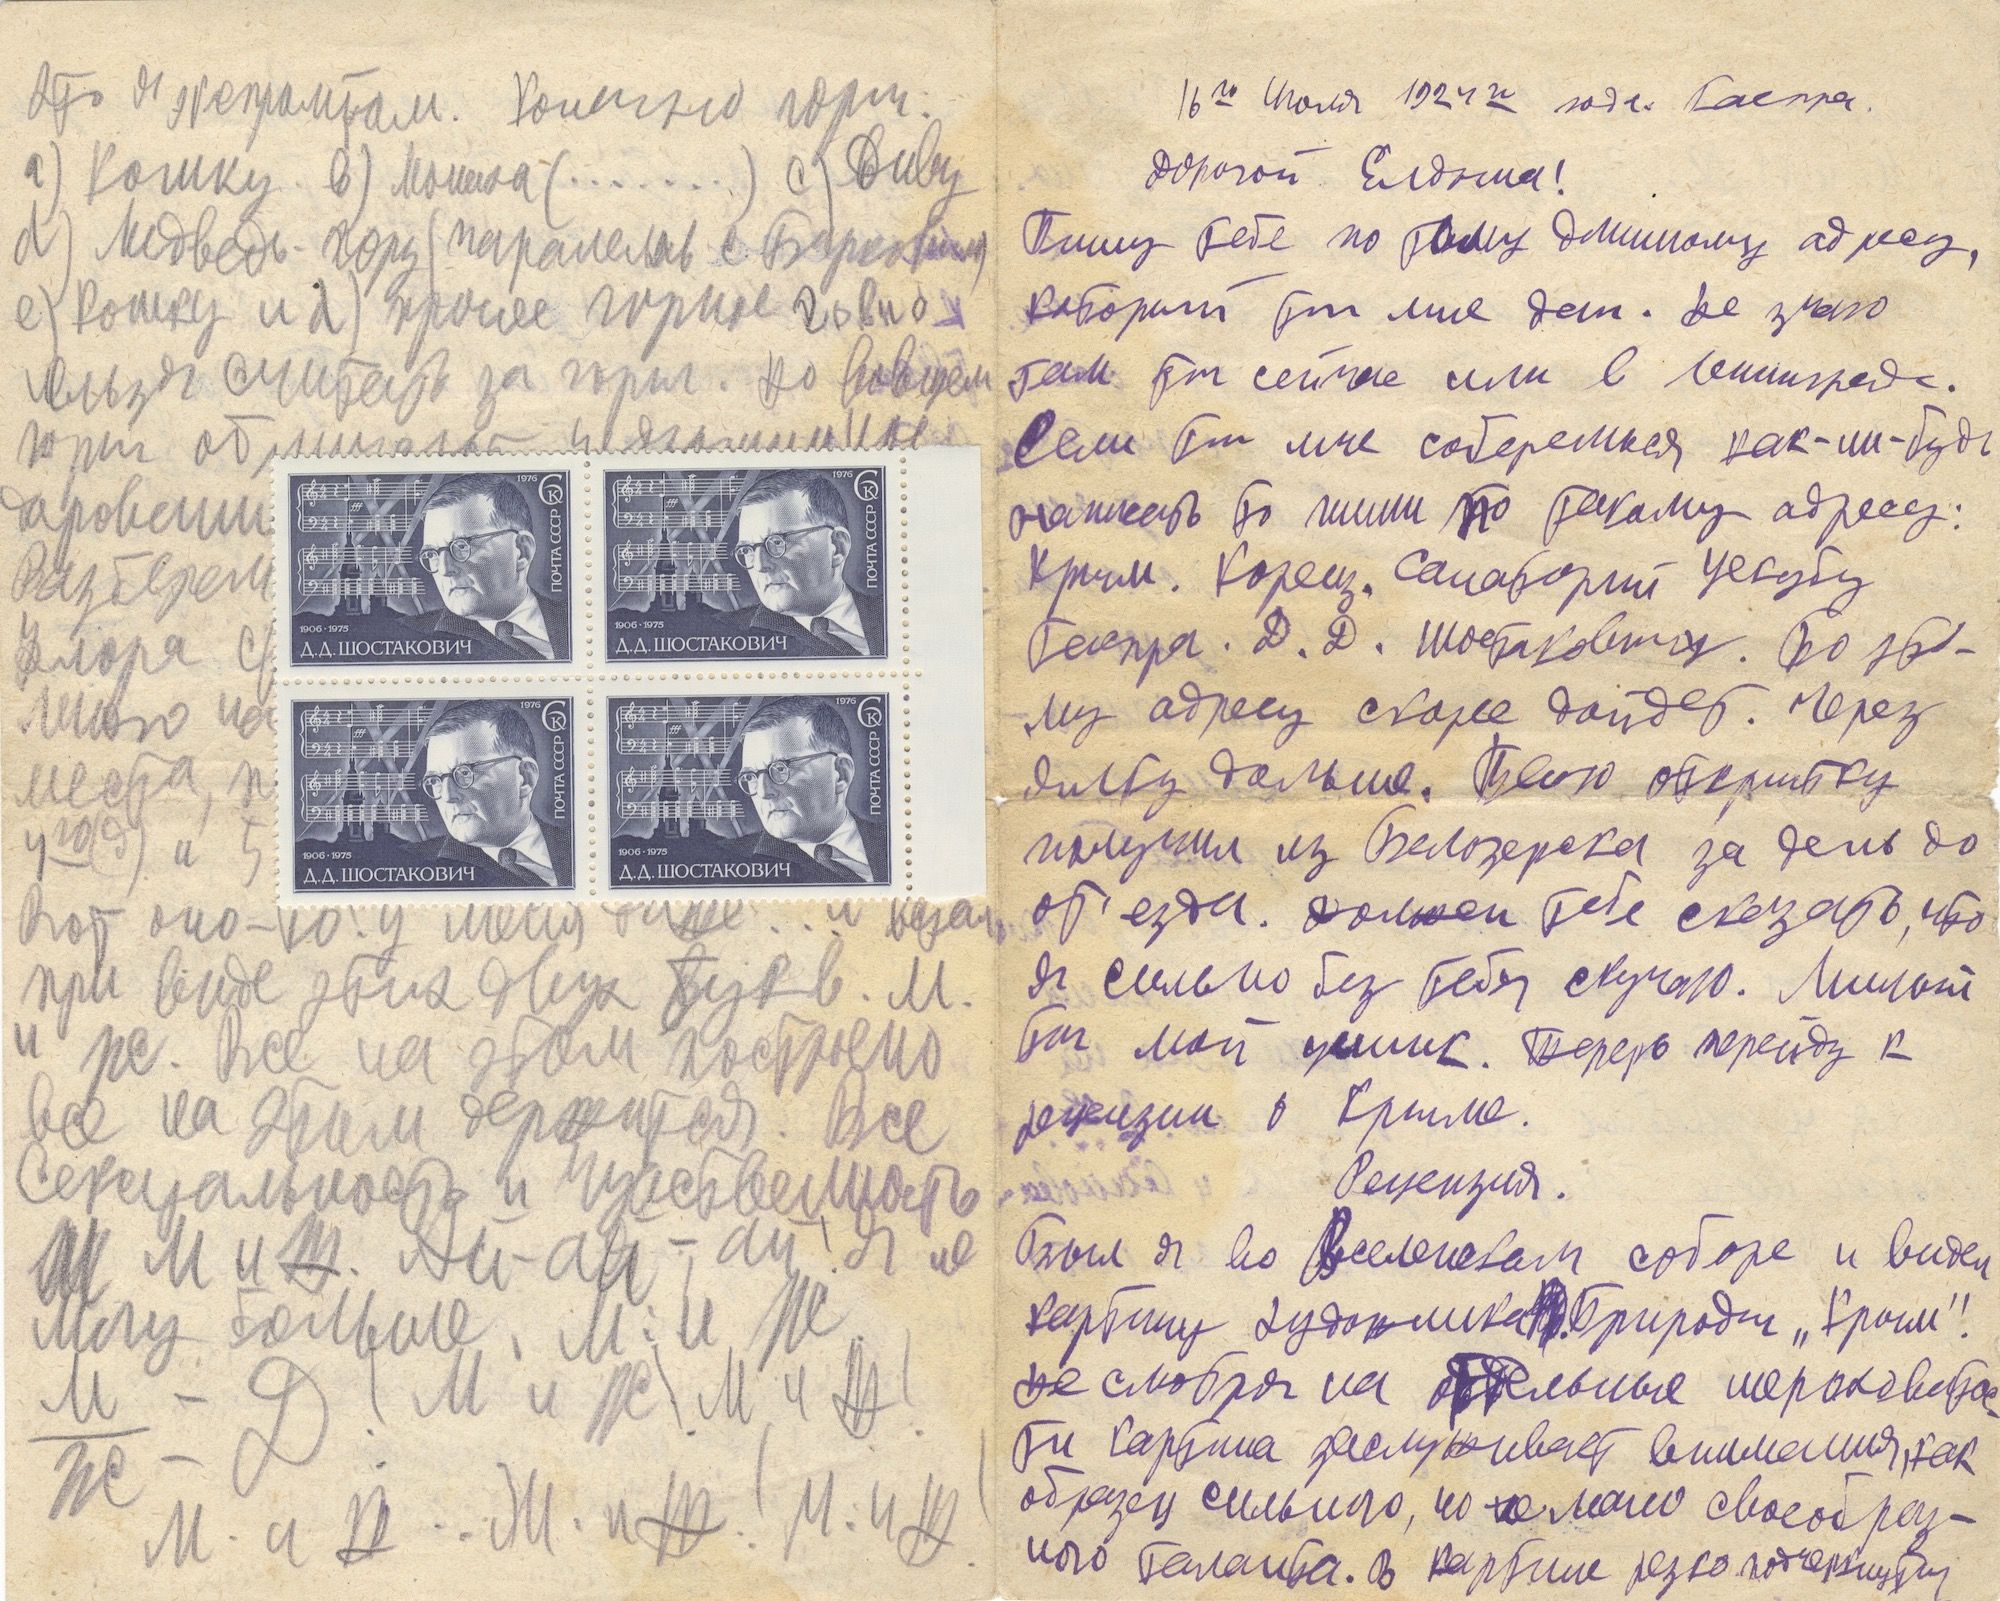 это я экспромтом. Конечно горы:
a) Кошку b) Монаха (........) c) Диву
d) Медведь-гору (паралель с
e) Кошку и d) прочее горное говно
нельзя считать за горы. Но вообщем
горы
даровани
Разберем
места,
и 5
Вот оно-то! У меня даже ... и
при виде этих двух букв. М.
и Ж. Все на этом построено
все на этом держится. Все
Сексуальность и чувственность
М и Ж. Ай-ай-ай! Я не
могу больше. М. и Ж.
М – Д! М и Ж! М и Ж!
Ж –
М. и Ж... М. и Ж.! М. и Ж!
1976 6к
ПОЧТА СССР
1906·1975
Д.Д. ШОСТАКОВИЧ
1976 6к
ПОЧТА СССР
1906·1975
Д.Д. ШОСТАКОВИЧ
1976 6к
ПОЧТА СССР
1906·1975
Д.Д. ШОСТАКОВИЧ
1976 6к
ПОЧТА СССР
1906·1975
Д.Д. ШОСТАКОВИЧ
16го Июля 1924го года. Гаспра.
Дорогой
Пишу тебе по тому длинному адресу,
который ты мне дал. Не знаю
там ты сейчас или в Ленинграде.
Если ты мне соберешься как-ни-будь
написать то пиши по такому адресу:
Крым. Кореиз. Санаторий Цекубу
Гаспра. Д. Д. Шостаковичу. По это-
му адресу скорее дойдет. Через
Ялту дольше. Твою открытку
получил из Белозерска за день до
от'езда. Должен тебе сказать, что
я сильно без тебя скучаю. Милый
ты мой ушик. Теперь перейду к
рецензии о Крыме.
Рецензия.
Был я во Вселенском соборе и видел
картину художника Природы „Крым".
Не смотря на отдельные шероховатос-
ти картина заслуживает внимания, как
образец сильного, но не мало своеобраз-
ного таланта. В картине резко подчеркнуты